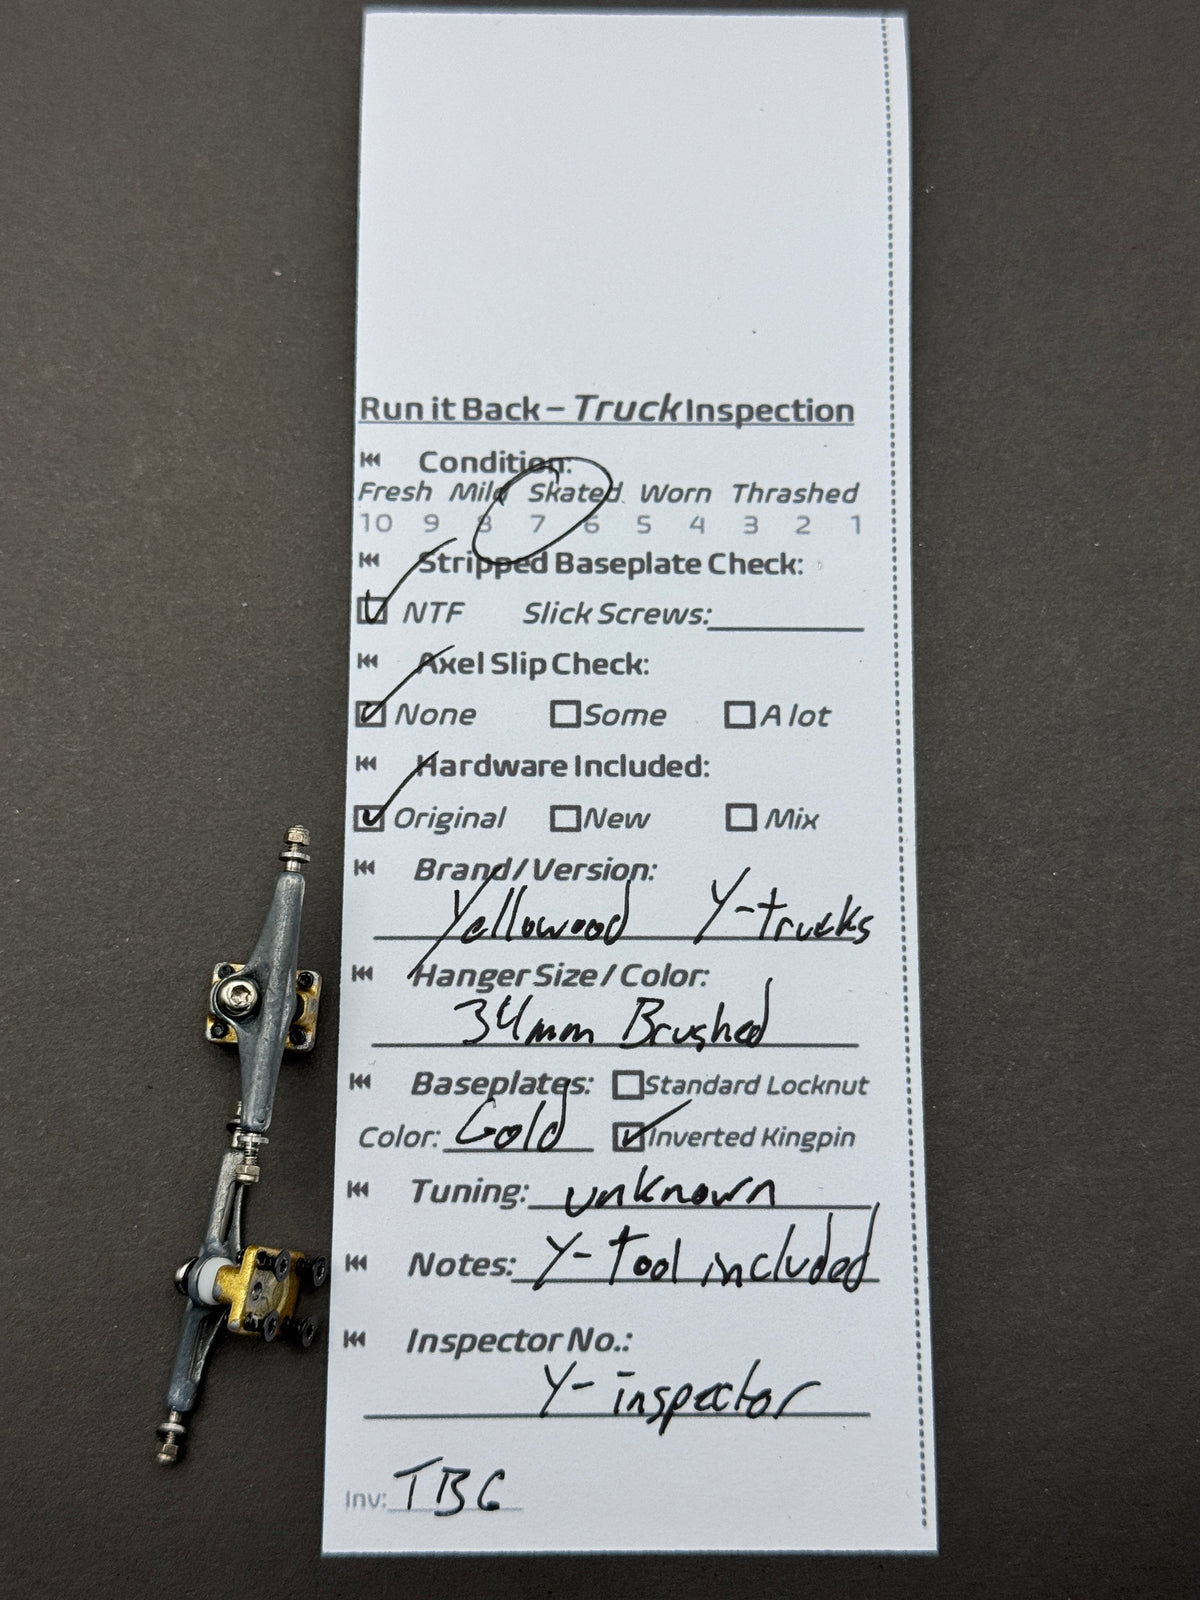 Run it Back – Truck Inspection
Condition:
Fresh Mild Skated Worn Thrashed
10 9 8 7 6 5 4 3 2 1
Stripped Baseplate Check:
NTF Slick Screws:
Axel Slip Check:
None Some A lot
Hardware Included:
Original New Mix
Brand/Version:
Yellowood Y-trucks
Hanger Size / Color:
34mm Brushed
Baseplates: Standard Locknut
Color: Gold Inverted Kingpin
Tuning: unknown
Notes: Y-Tool included
Inspector No.:
Y-inspector
Inv: TBG